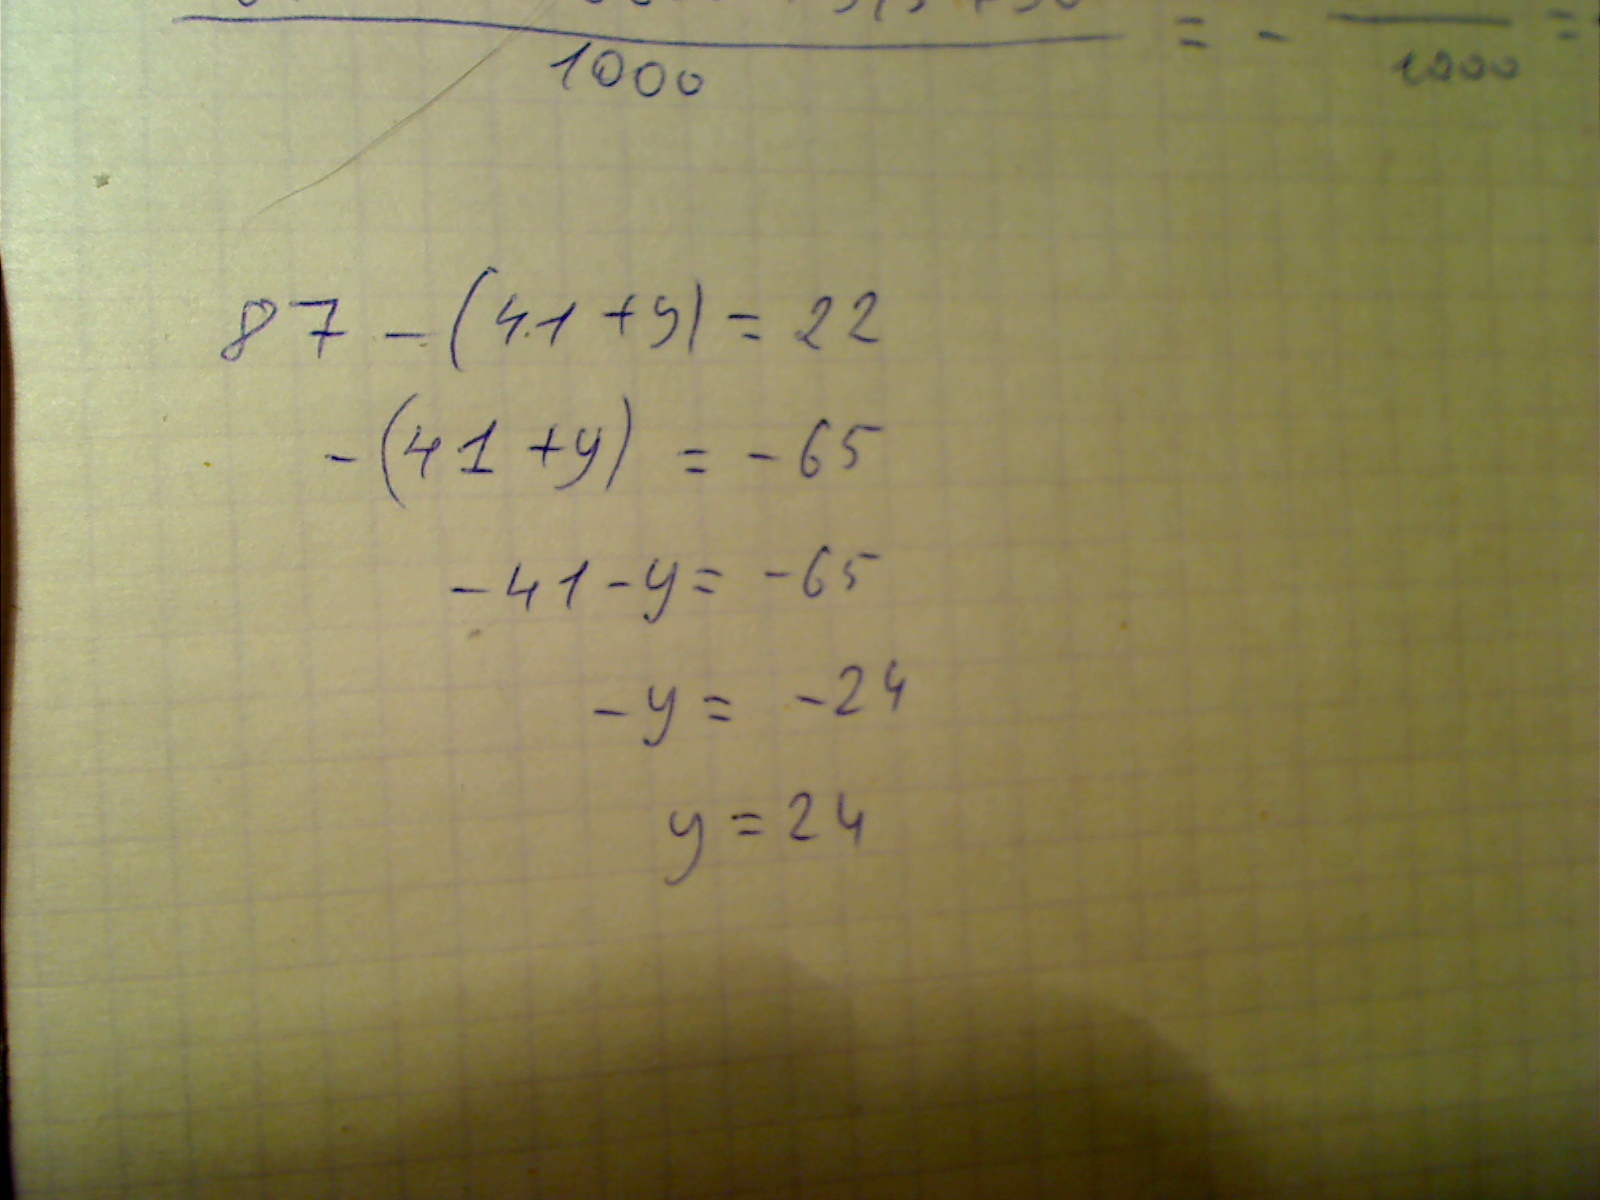 1000 = - 1000 =
87 - (41 + y) = 22
- (41 + y) = - 65
- 41 - y = - 65
- y = - 24
y = 24